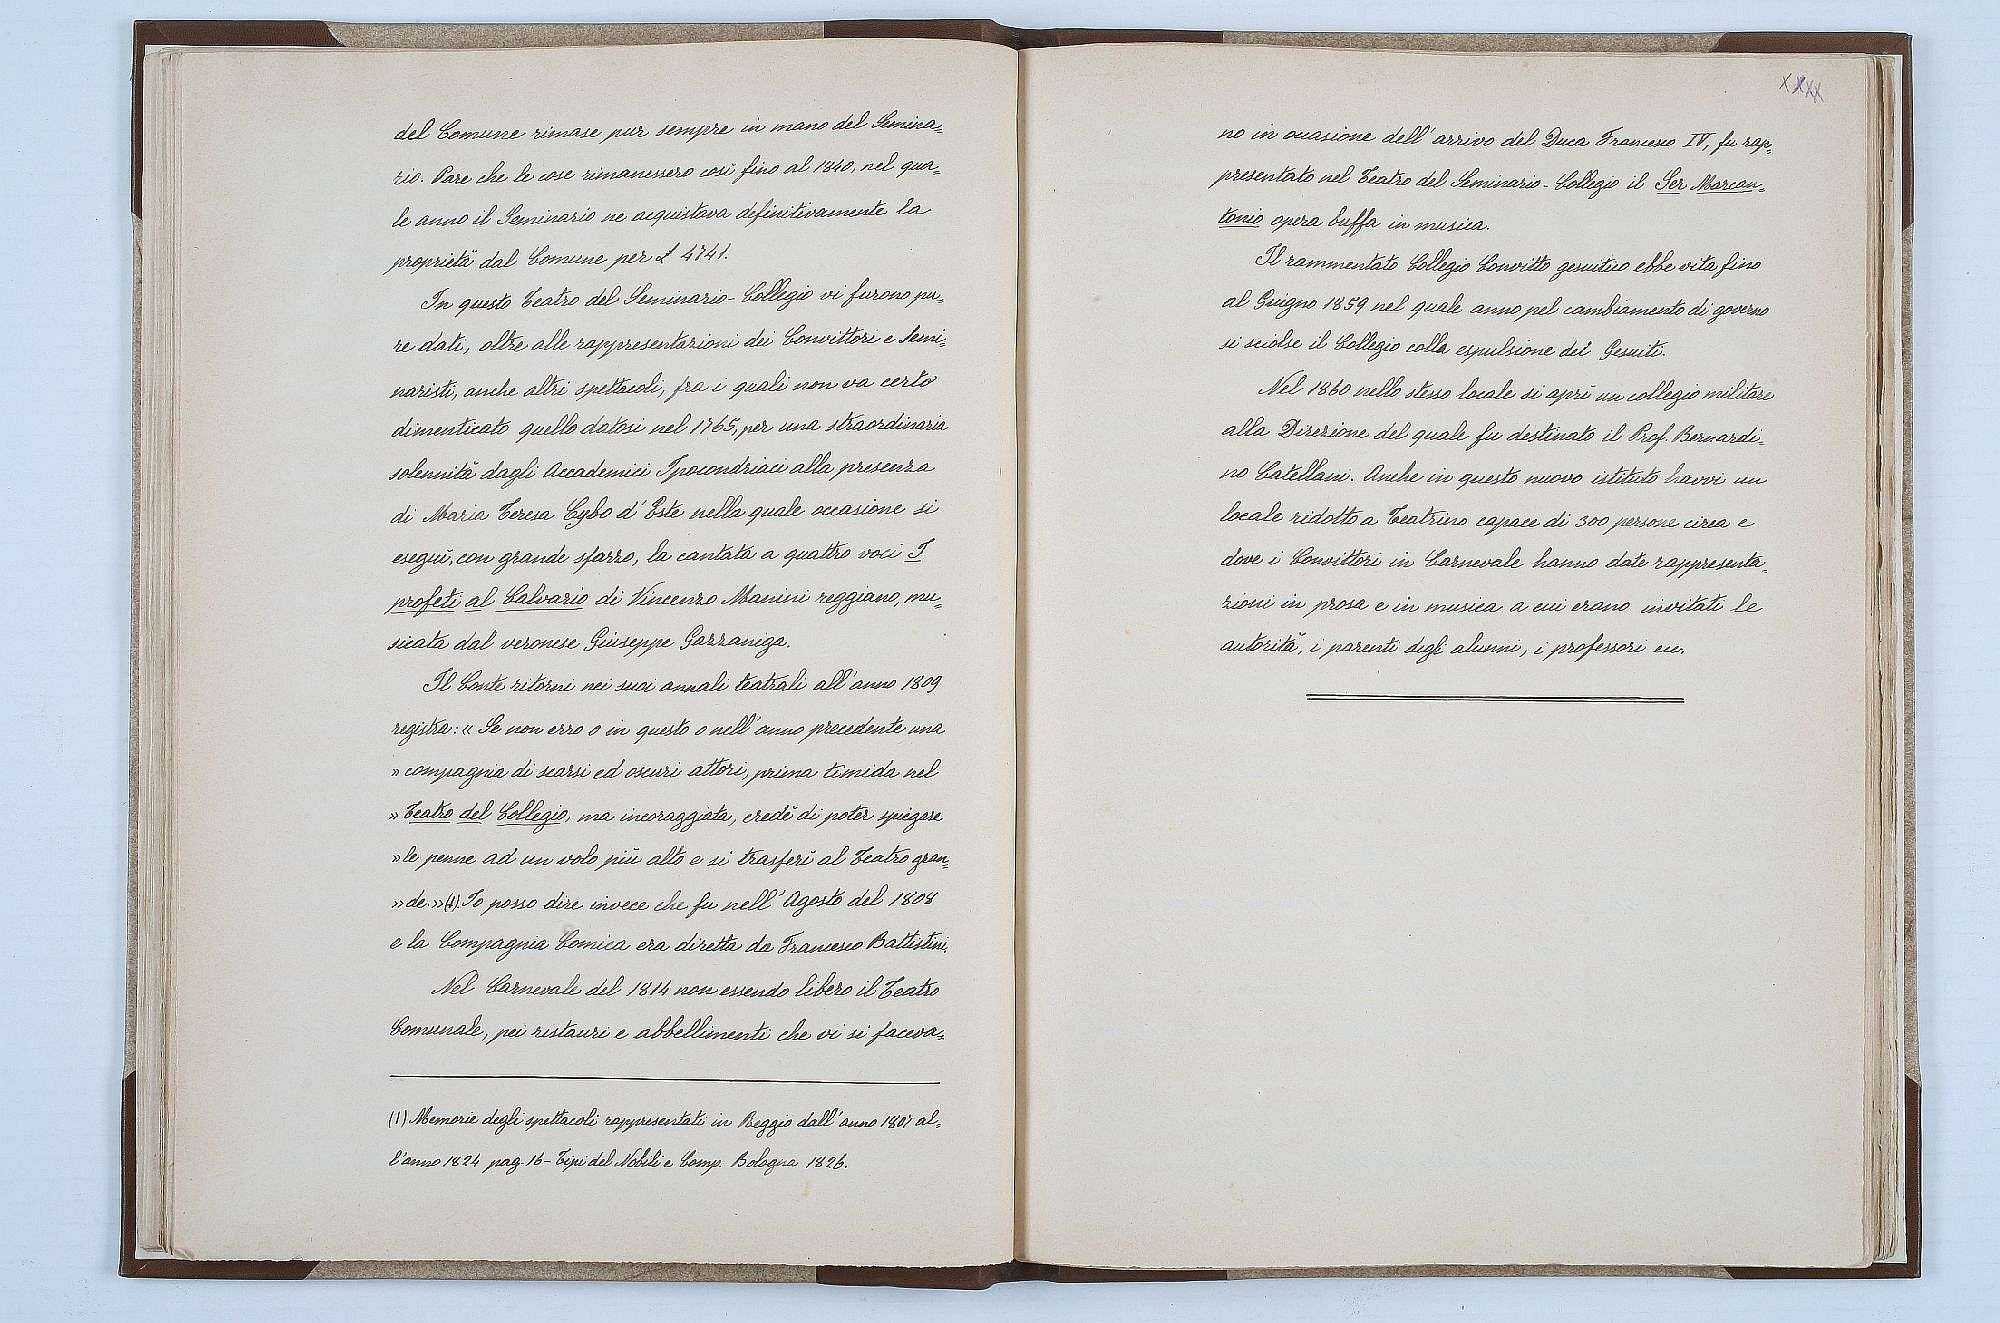 del Comune rimase pur sempre in mano del Semina=
rio. Pare che le cose rimanessero così fino al 1840, nel qua=
le anno il Seminario ne acquistava definitivamente la
proprietà dal Comune per £ 4741.
In questo Teatro del Seminario-Collegio vi furono pu=
re dati, oltre alle rappresentazioni dei Convittori e Semi=
naristi, anche altri spettacoli, fra i quali non va certo
dimenticato quello datosi nel 1765, per una straordinaria
solennità dagli Accademici Ipocondriaci alla presenza
di Maria Teresa Cybo d'Este nella quale occasione si
eseguì, con grande sfarzo, la cantata a quattro voci I
profeti al Calvario di Vincenzo Manini reggiano, mu=
sicata dal veronese Giuseppe Gazzaniga.
Il Conte ritorni nei suoi annali teatrali all'anno 1809
registra: « Se non erro o in questo o nell'anno precedente una
» compagnia di scarsi ed oscuri attori, prima timida nel
» Teatro del Collegio, ma incoraggiata, credè di poter spiegare
» le penne ad un volo più alto e si trasferì al Teatro gran=
» de. » (1). Io posso dire invece che fu nell'Agosto del 1808
e la Compagnia Comica era diretta da Francesco Battistini.
Nel Carnevale del 1814 non essendo libero il Teatro
Comunale, pei restauri e abbellimenti che vi si faceva=
(1) Memorie degli spettacoli rappresentati in Reggio dall'anno 1807 al=
l'anno 1824 pag. 16 - Tipi del Nobili e Comp. Bologna 1826.
XXXX
no in occasione dell'arrivo del Duca Francesco IV, fu rap=
presentato nel Teatro del Seminario-Collegio il Ser Marcan=
tonio opera buffa in musica.
Il rammentato Collegio Convitto gesuitico ebbe vita fino
al Giugno 1859 nel quale anno pel cambiamento di governo
si sciolse il Collegio colla espulsione dei Gesuiti.
Nel 1860 nello stesso locale si aprì un collegio militare
alla Direzione del quale fu destinato il Prof. Bernardi=
no Catellani. Anche in questo nuovo istituto havvi un
locale ridotto a Teatrino capace di 300 persone circa e
dove i Convittori in Carnevale hanno date rappresenta=
zioni in prosa e in musica a cui erano invitati le
autorità, i parenti degli alunni, i professori ecc.